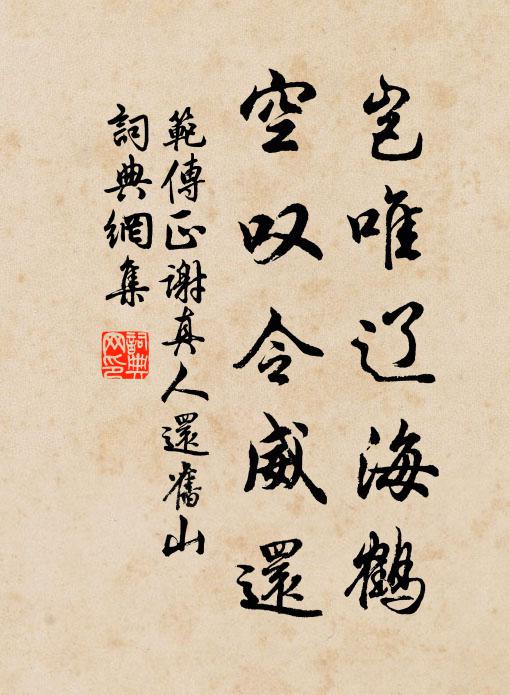 岂唯辽海鶴
空叹令威還
範傳正謝真人還舊山
詞典網集
詞典网印